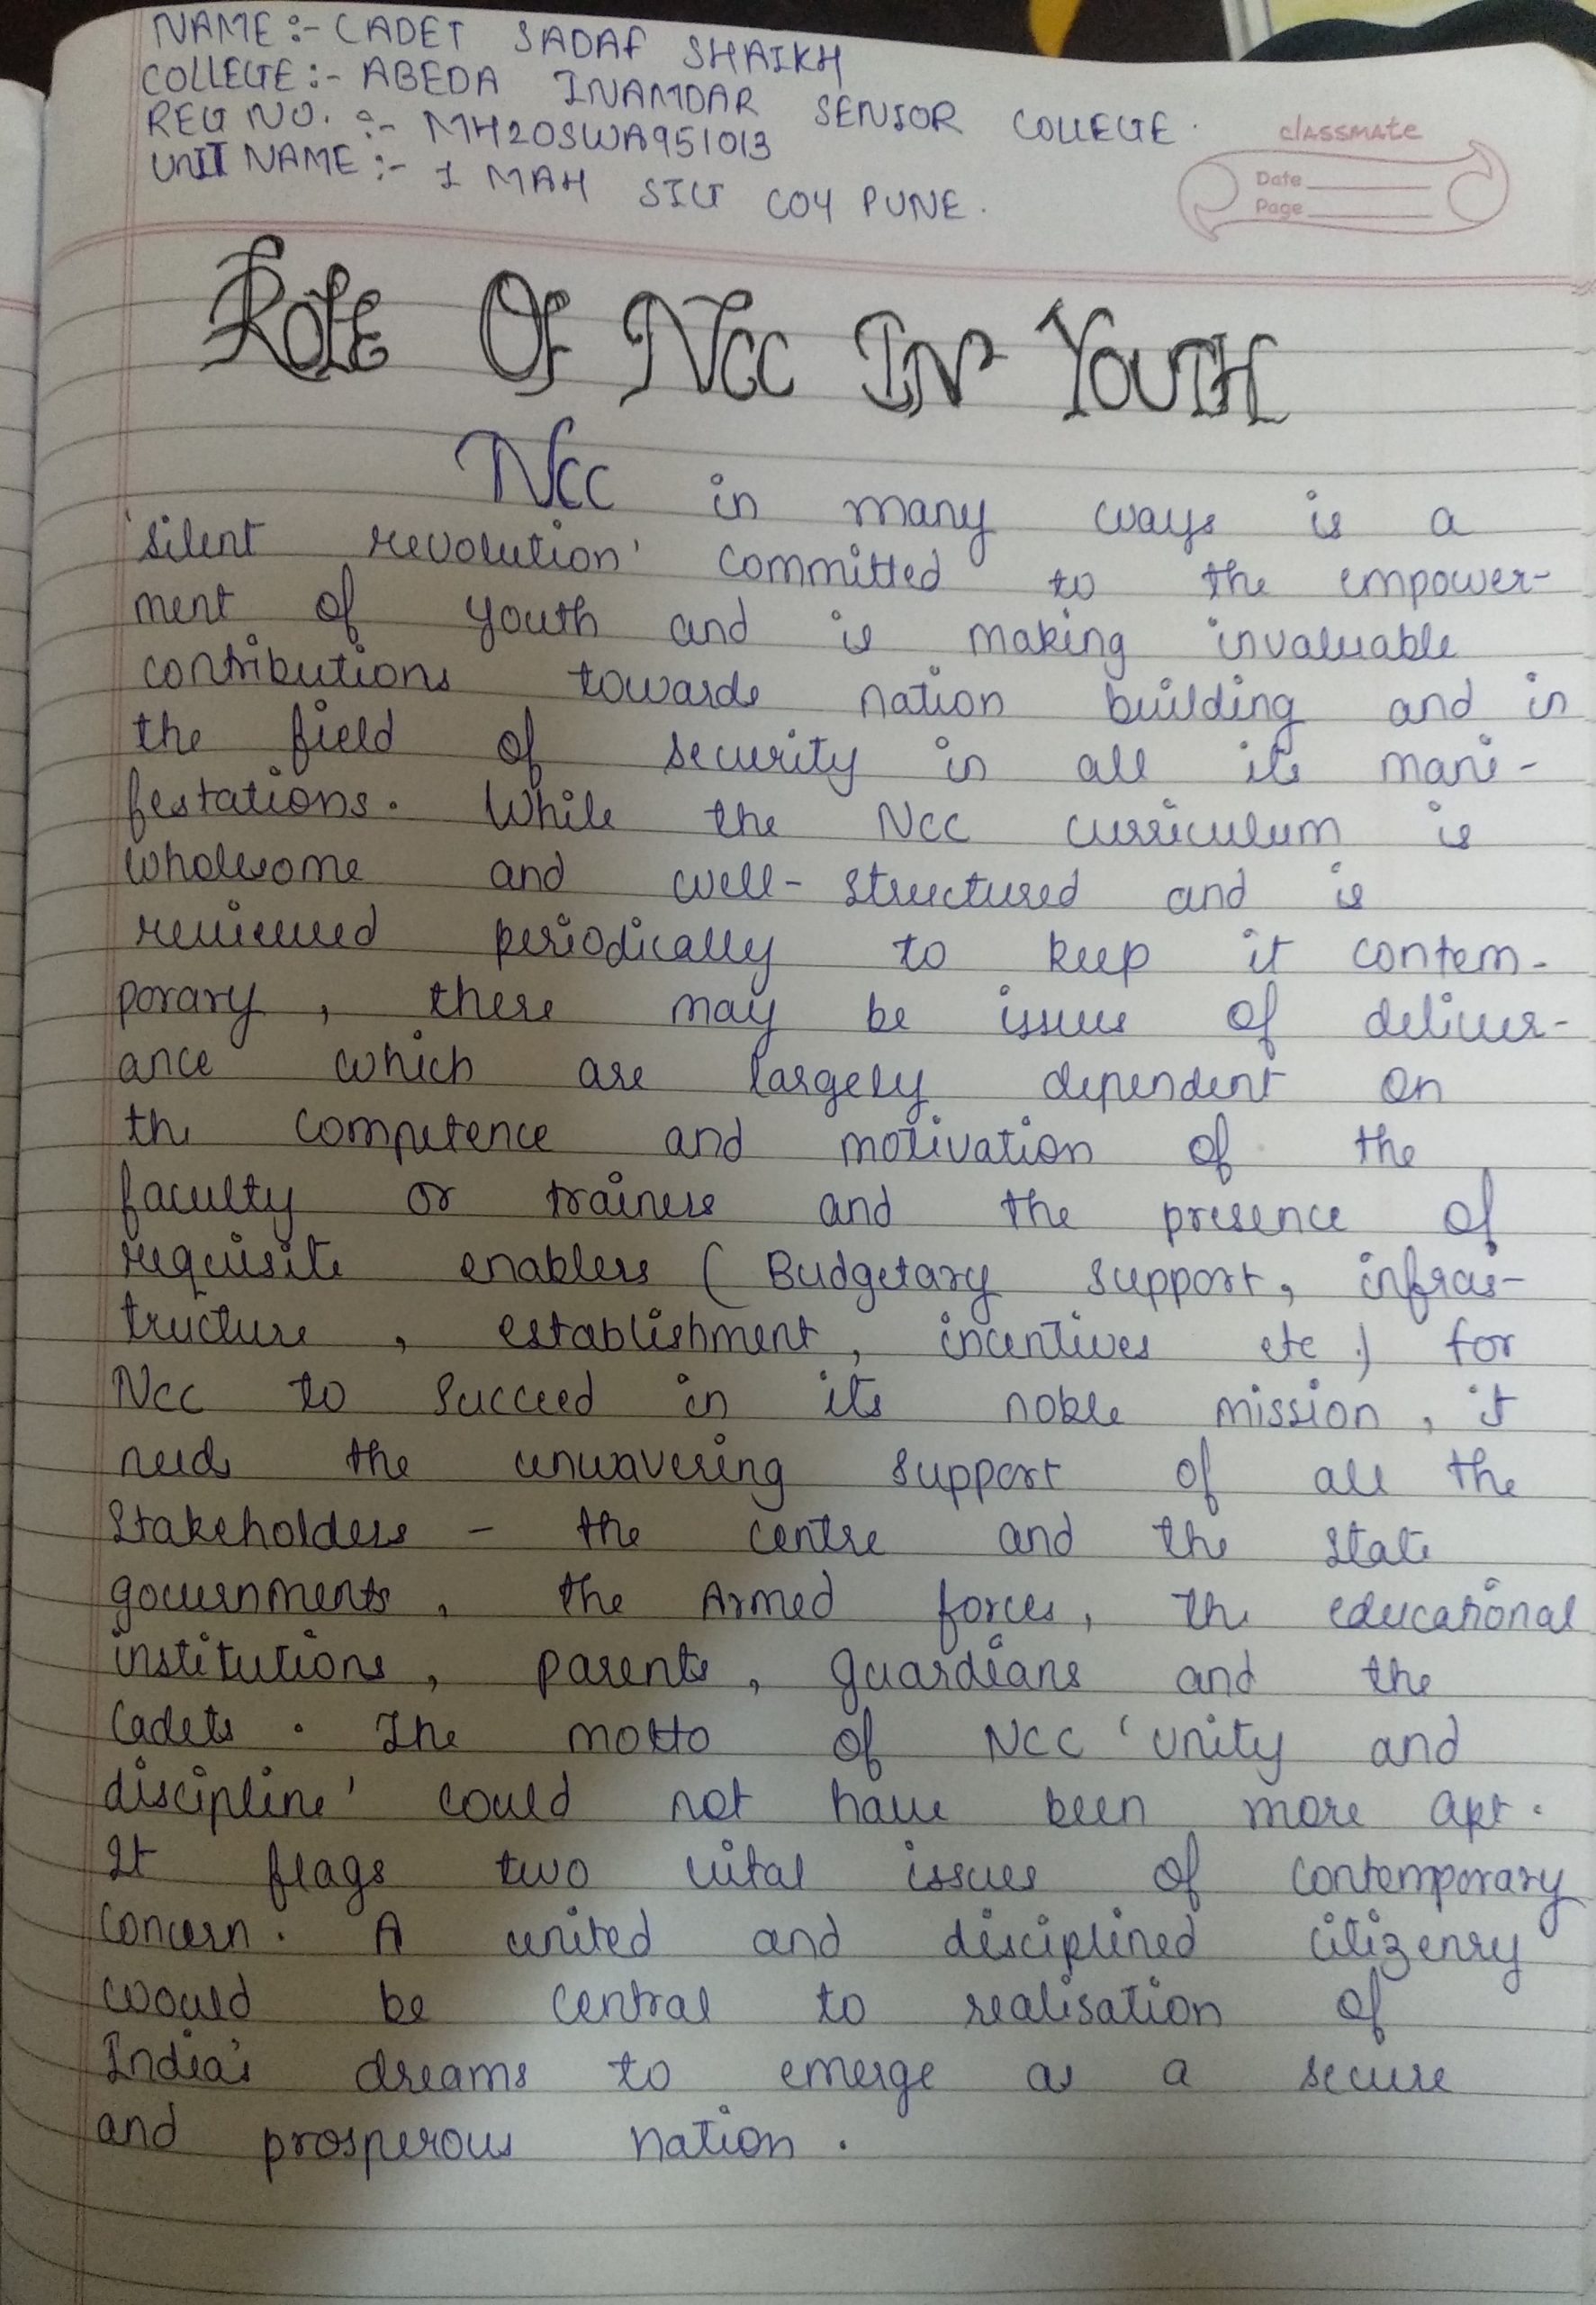 NAME :- CADET SADAF SHAIKH
COLLEGE :- ABEDA INAMDAR SENIOR COLLEGE.
REG NO. :- MH20SWA951013
UNIT NAME :- 1 MAH SIG COY PUNE.
classmate
Date
Page
ROLE OF NCC IN YOUTH
NCC in many ways is a
'silent revolution' committed to the empower-
ment of youth and is making invaluable
contributions towards nation building and in
the field of security in all its mani-
festations. While the NCC curriculum is
wholesome and well-structured and is
reviewed periodically to keep it contem-
porary, there may be issues of deliver-
ance which are largely dependent on
the competence and motivation of the
faculty or trainers and the presence of
requisite enablers (Budgetary support, infras-
tructure, establishment, incentives etc.) for
NCC to succeed in its noble mission, it
needs the unwavering support of all the
Stakeholders - the centre and the state
governments, the Armed forces, the educational
institutions, parents, guardians and the
Cadets. The motto of NCC 'unity and
discipline' could not have been more apt.
It flags two vital issues of contemporary
concern. A united and disciplined citizenry
would be central to realisation of
India's dreams to emerge as a secure
and prosperous nation.